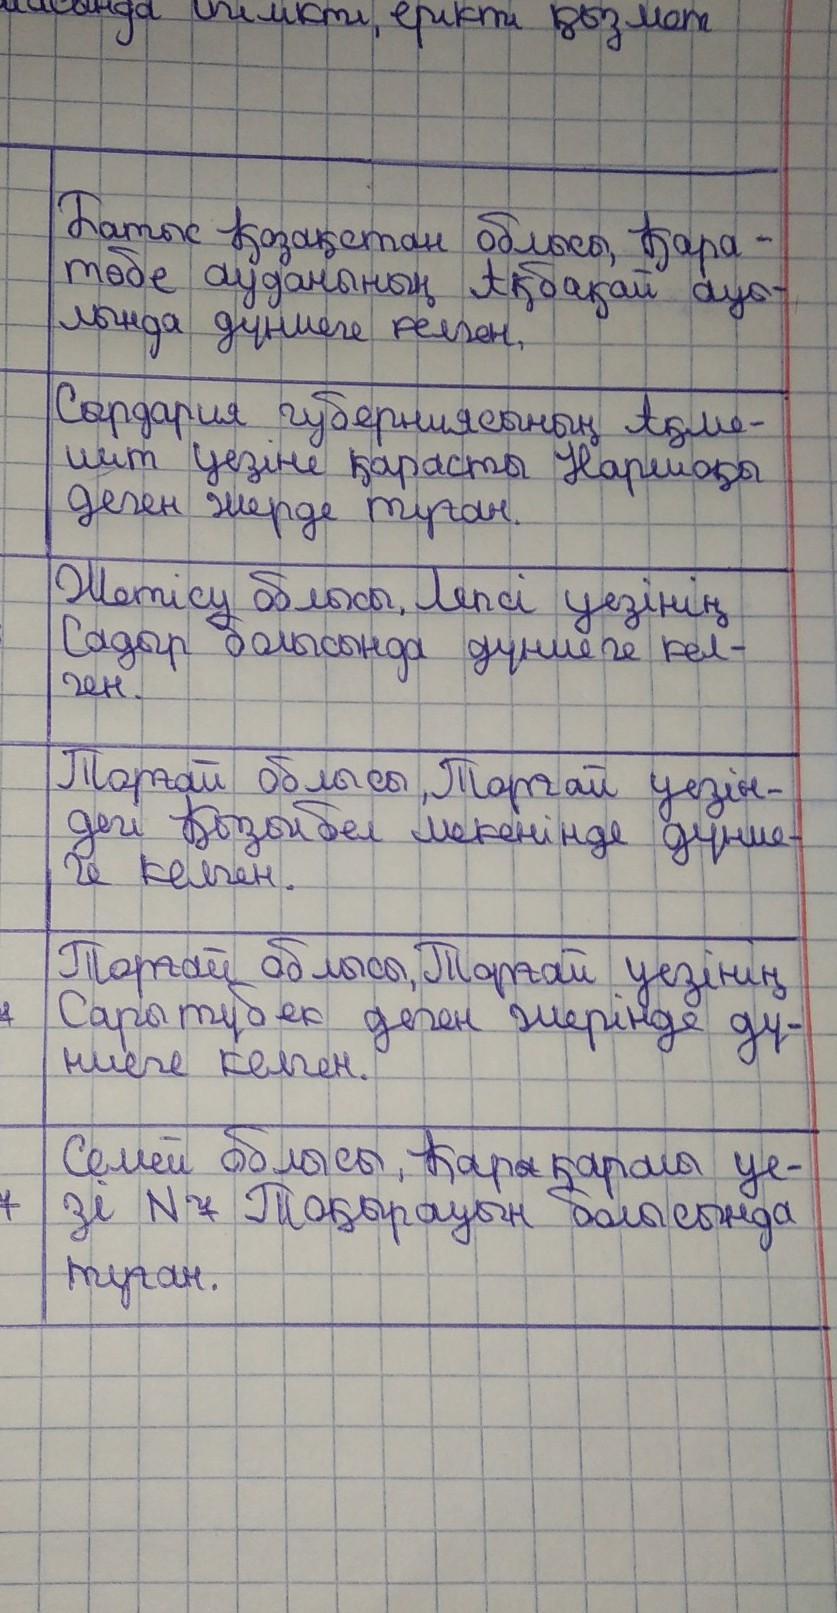 еріктi қызмет
Батыс Қазақстан облысы, Қара-
төбе ауданының Ақбақай ауы-
лында дүниеге келген.
Сырдария губерниясының Ақме-
шит уезіне қарасты Наршоқы
деген жерде туған.
Жетісу облысы, Лепсі уезінің
Садыр болысында дүниеге кел-
ген.
Торғай облысы, Торғай уезін-
дегі Қызылбел мекенінде дүние-
ге келген.
Торғай облысы, Торғай уезінің
Сарытүбек деген жерінде дү-
ниеге келген.
Семей облысы, Қарақаралы уе-
зі N7 Тоқырауын болысында
туған.